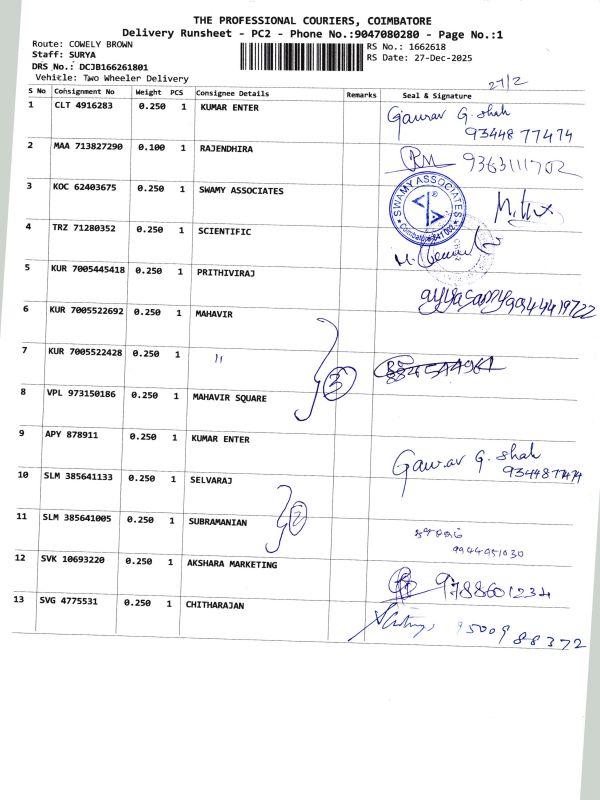 THE PROFESSIONAL COURIERS, COIMBATORE
Delivery Runsheet - PC2 - Phone No.:9047080280 - Page No.:1
Route: COWELY BROWN
RS No.: 1662618
Staff: SURYA
RS Date: 27-Dec-2025
DRS No.: DCJB166261801
Vehicle: Two Wheeler Delivery
27/2
S No Consignment No Weight PCS Consignee Details Remarks Seal & Signature
1 CLT 4916283 0.250 1 KUMAR ENTER Gaurav G. Shah
93448 77474
2 MAA 713827290 0.100 1 RAJENDHIRA 9363111702
3 KOC 62403675 0.250 1 SWAMY ASSOCIATES
SWAMY ASSOCIATES
4 TRZ 71280352 0.250 1 SCIENTIFIC
5 KUR 7005445418 0.250 1 PRITHIVIRAJ
ayyasamy 9344419722
6 KUR 7005522692 0.250 1 MAHAVIR
7 KUR 7005522428 0.250 1 "
3
8 VPL 973150186 0.250 1 MAHAVIR SQUARE
9 APY 878911 0.250 1 KUMAR ENTER Gaurav G. Shah
9344877474
10 SLM 385641133 0.250 1 SELVARAJ
2
11 SLM 385641005 0.250 1 SUBRAMANIAN
9944951030
12 SVK 10693220 0.250 1 AKSHARA MARKETING 9788601234
13 SVG 4775531 0.250 1 CHITHARAJAN 9500988372